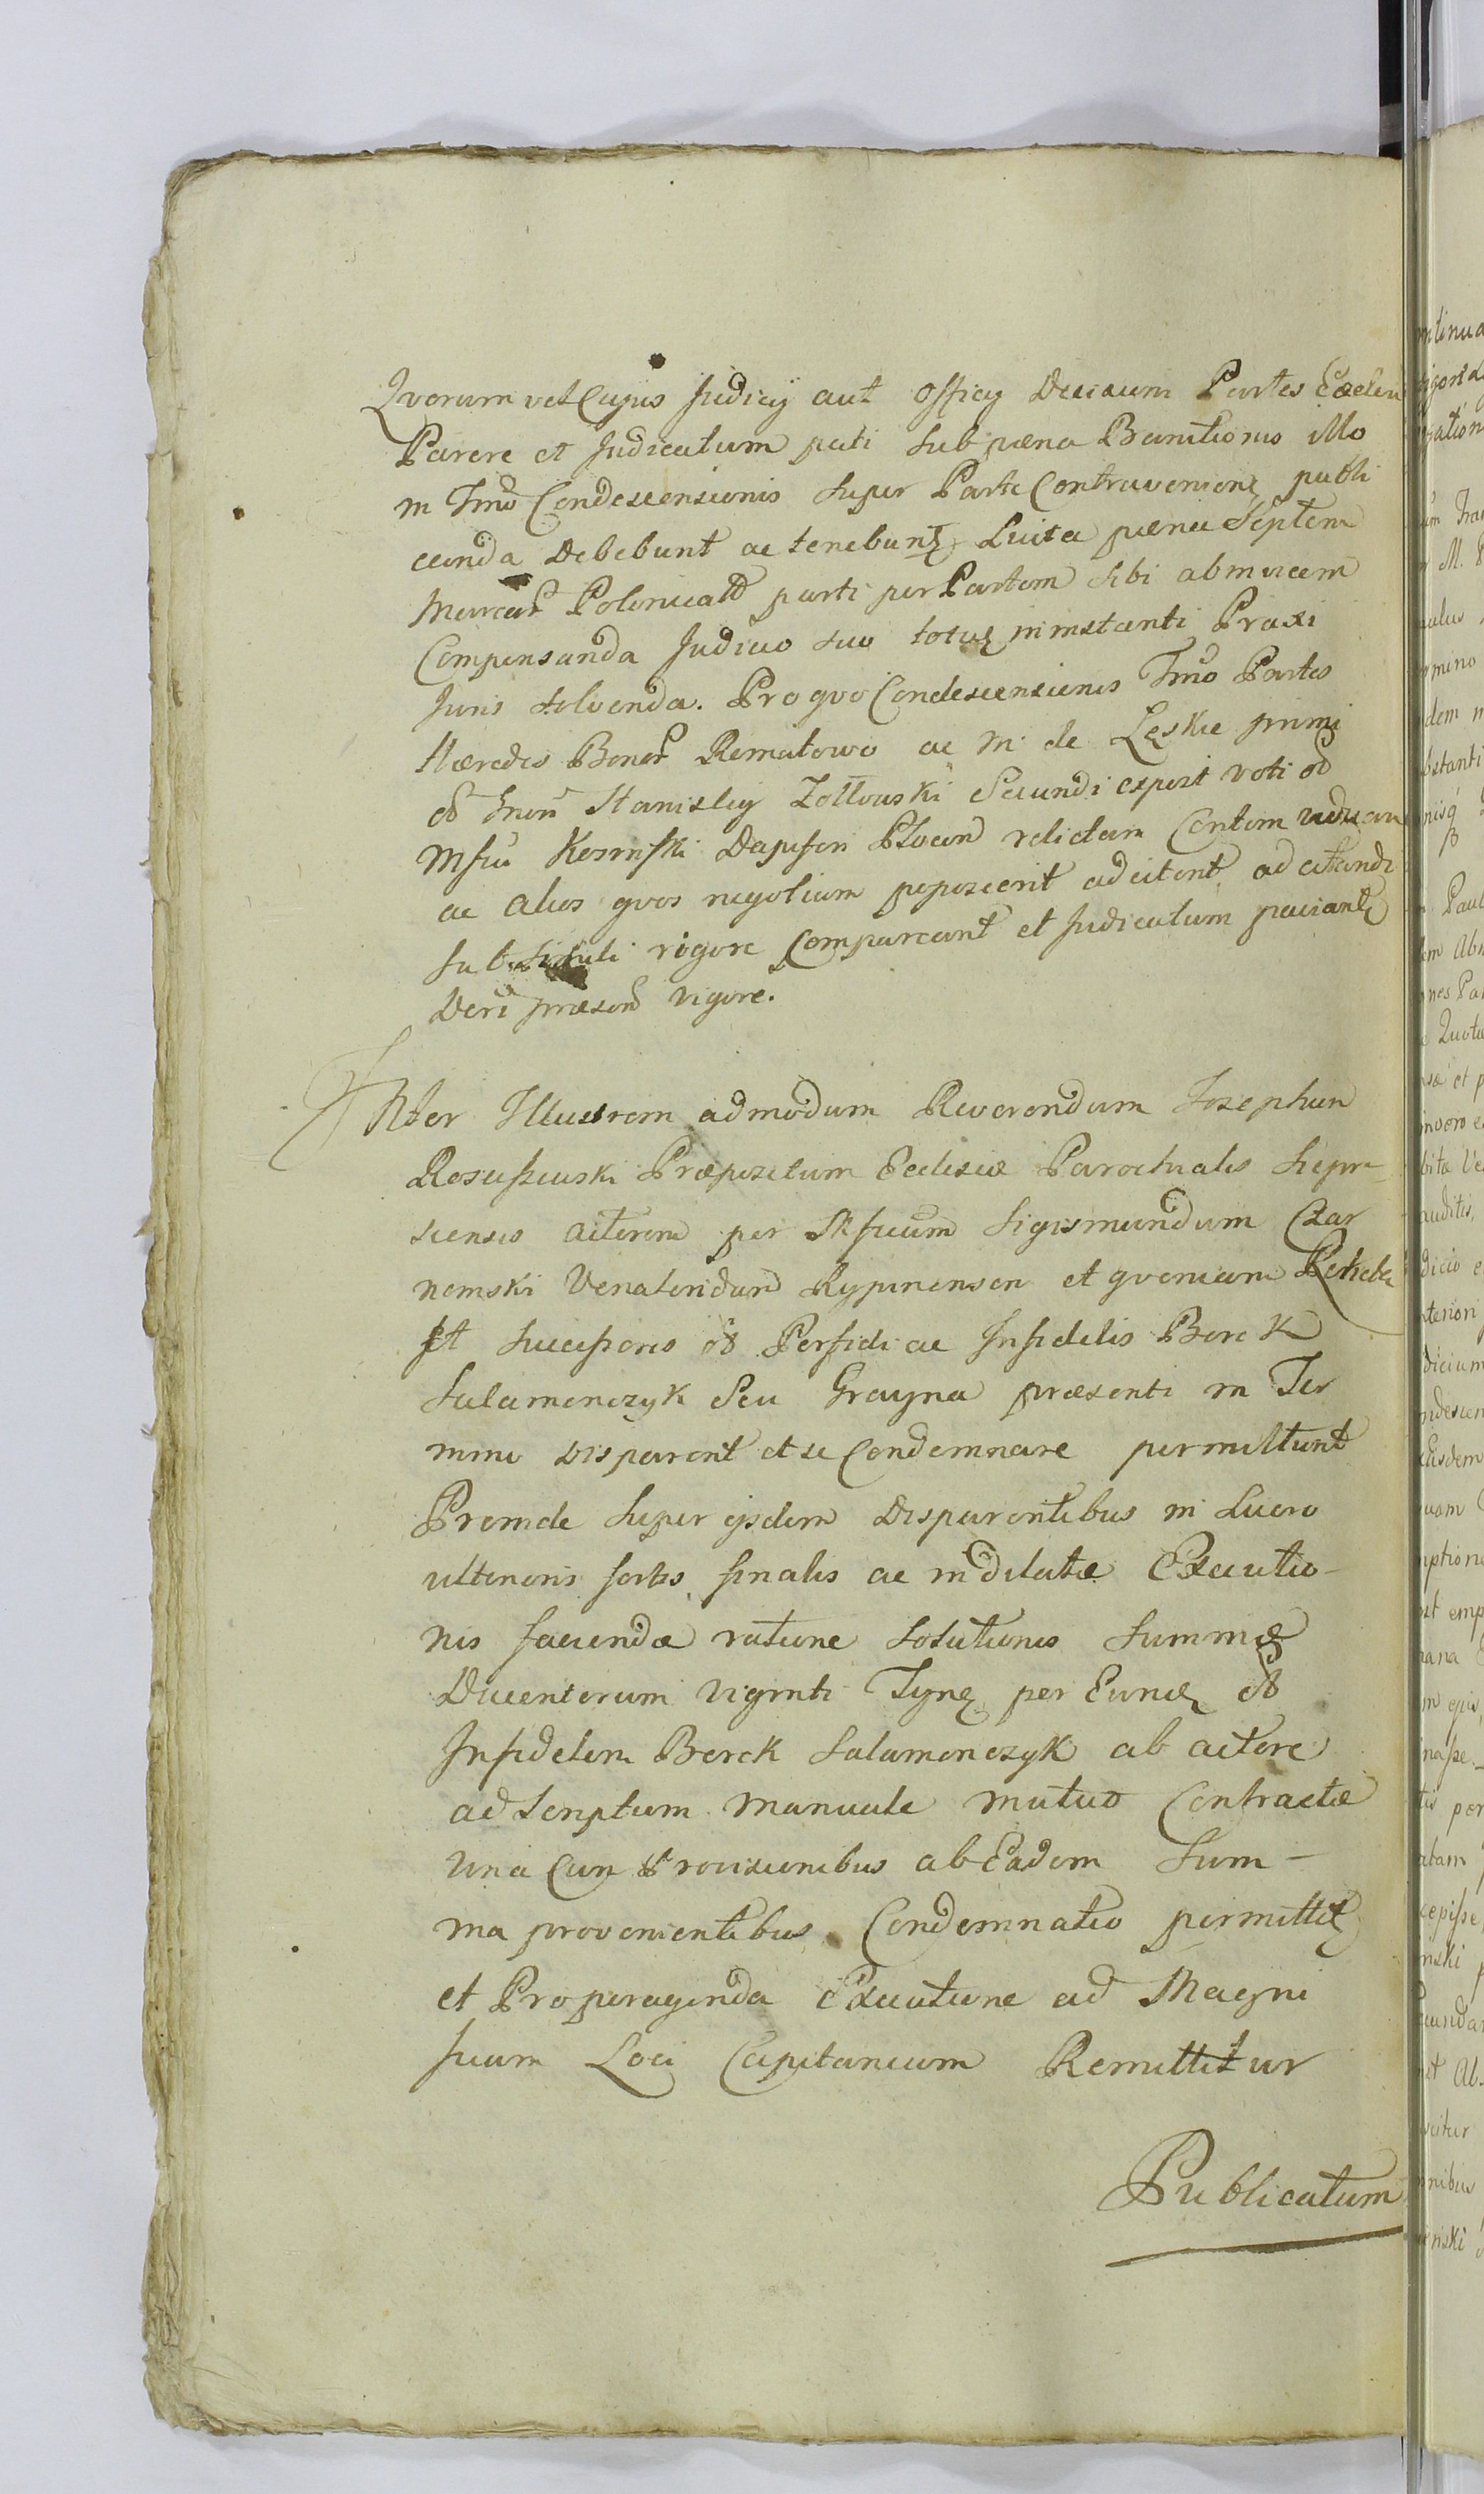 Qvorum vel Cujus Judicij aut Officij Decisum Partes Eædem
Parere et Judicatum pati sub pæna Banitionis illo
in Tmo Condescensionis super Parte Contravenienẽ publi
canda Debebunt ac tenebunt Luita pæna Septem
Marcar Polonical parti per Partem sibi abinvicem
Compensanda Judicio suo totiẽ in instanti Praxi
Juris solvenda. Pro qvo Condescensionis Tmo Partes
Hæredes Bonor Rematowo ac in de Łęskie primi
Stanisley Zołtowski Secundi expost voti
Msci Kosinski Dapiferi Plocen relictam Contem
ac alios qvos negotium poposcerit adcitent adcitandi
sub simili rigore Compareant et Judicatum patiant
Decri præsen vigore.
Inter Illustrem admodum Reverendum Josephum
Rosciszewski Præpositum Ecclesiæ Parochialis Siepr-
scensis actorem per Mficum Sigismundum Czar
nomski Venatoridam Rypinensen et qvemcum
et Successores Perfidi ac Infidelis Berek
Salamonczyk Seu Grayna præsenti in Ter
mino Disparent et se Condemnare permittunt
Proinde super ijsdem Disparentibus in Lucro
ulterioris fortis finalis ac indilatæ Executio-
nis faciendæ ratione Solutionis Summæ
Ducentorum viginti Tynẽ per Eunđ
Infidelem Berek Salamonczyk ab actore
ad Scriptum Manuale mutuo Contractæ
una Cum Provisionibus ab Eadem Sum-
ma provenientibus Condemnatio permittit
et Pro peragenda Executione ad Magni
ficum Loci Capitaneum Remittitur
Publicatum